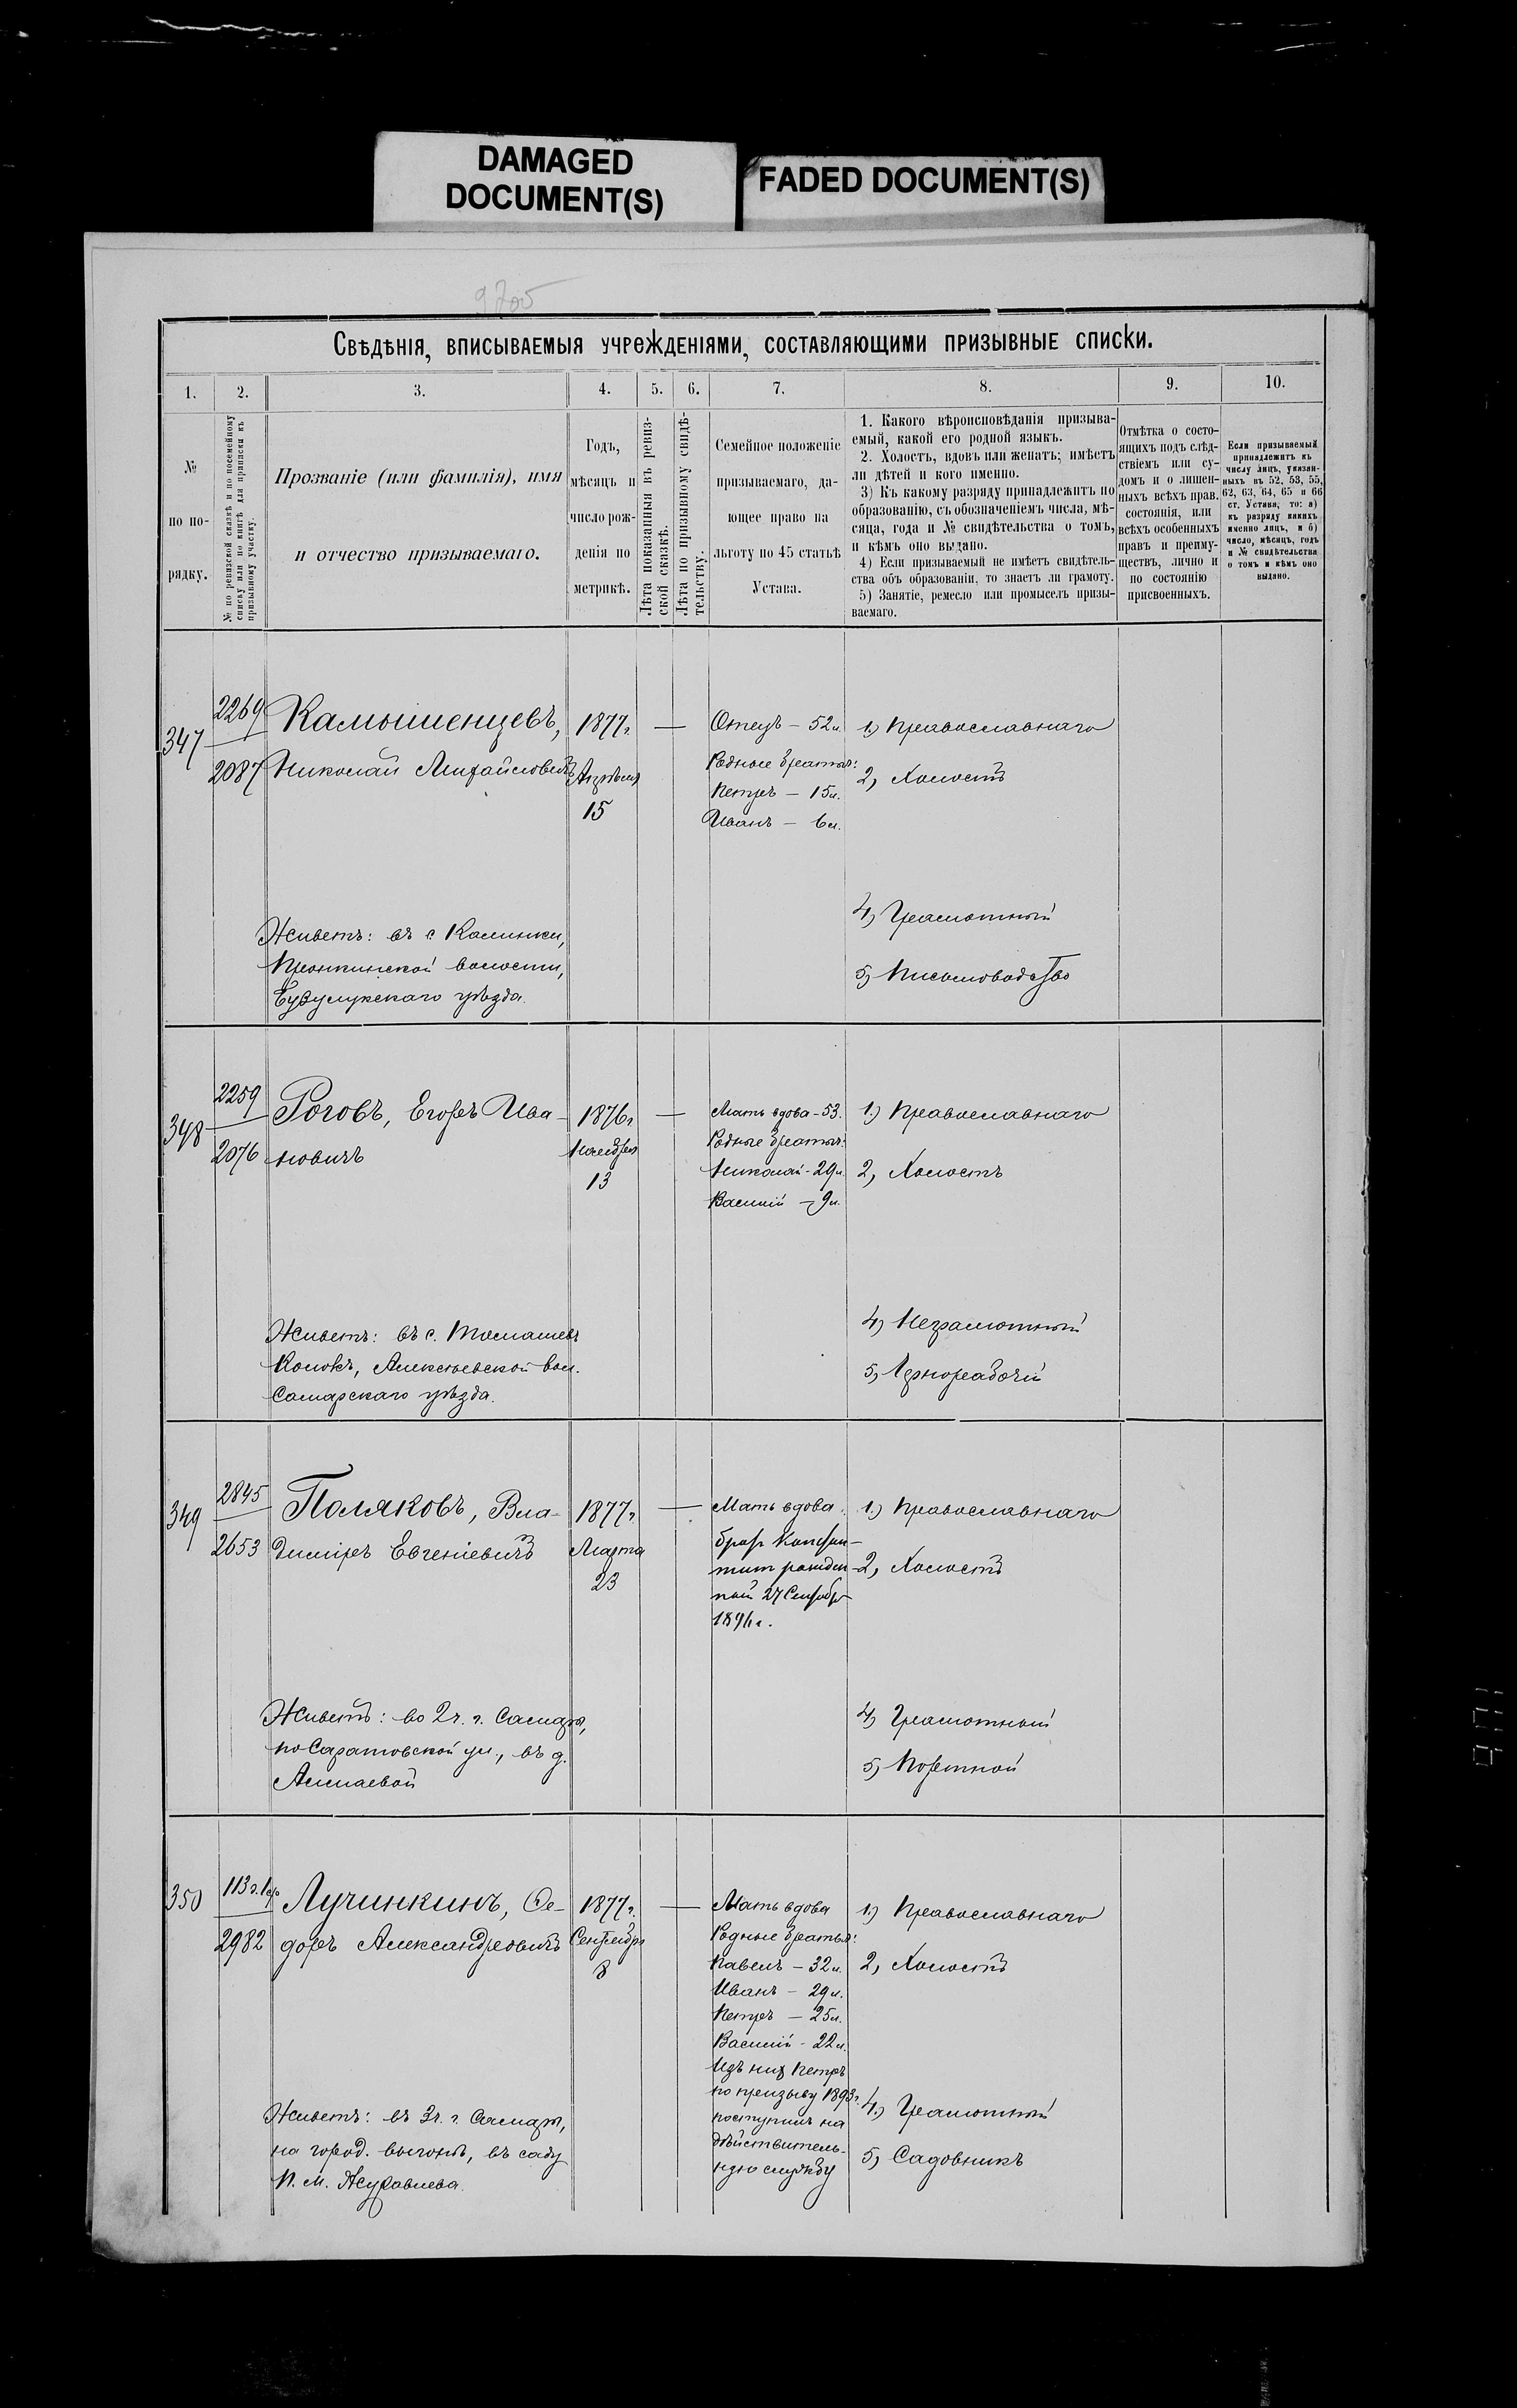 DAMAGED
DOCUMENT(S)
FADED DOCUMENT(S)
Свѣдѣнія, вписываемыя учрежденіями, составляющими призывные списки.
1.
2.
3.
4.
5.
6.
7.
8.
9.
10.
№
по по-
рядку.
№ по ревизской сказкѣ и по посемейному
списку или по книгѣ для приписки къ
призывному участку.
Прозваніе (или фамилія), имя
и отчество призываемаго.
Годъ,
мѣсяцъ и
число рож-
денія по
метрикѣ.
Лѣта показанныя въ ревиз-
ской сказкѣ.
Лѣта по призывному свидѣ-
тельству.
Семейное положеніе
призываемаго, да-
ющее право на
льготу по 45 статьѣ
Устава.
1. Какого вѣроисповѣданія призыва-
емый, какой его родной языкъ.
2. Холостъ, вдовъ или женатъ; имѣетъ
ли дѣтей и кого именно.
3) Къ какому разряду принадлежитъ по
образованію, съ обозначеніемъ числа, мѣ-
сяца, года и № свидѣтельства о томъ,
и кѣмъ оно выдано.
4) Если призываемый не имѣетъ свидѣтель-
ства объ образованіи, то знаетъ ли грамоту.
5) Занятіе, ремесло или промыселъ призы-
ваемаго.
Отмѣтка о состо-
ящихъ подъ слѣд-
ствіемъ или су-
домъ и о лишен-
ныхъ всѣхъ прав.
состоянія, или
всѣхъ особенныхъ
правъ и преиму-
ществъ, лично и
по состоянію
присвоенныхъ.
Если призываемый
принадлежитъ къ
числу лицъ, указан-
ныхъ въ 52, 53, 55,
62, 63, 64, 65 и 66
ст. Устава, то: а)
къ разряду какихъ
именно лицъ, и б)
число, мѣсяцъ, годъ
и № свидѣтельства
о томъ и кѣмъ оно
выдано.
347
2269
2087
Камышенцевъ,
Николай Михайловичъ
Живетъ: въ с. Калинки,
Пронкинской волости,
Бузулукскаго уѣзда.
1877г.
Апрѣля
15
—
Отецъ – 52л.
Родные братья:
Петръ – 15л.
Иванъ – 6л.
1.) Православнаго
2, Холостъ
4, Грамотный
5, Письмоводство
348
2259
2076
Роговъ, Егоръ Ива-
новичъ
Живетъ: въ с. Томашевъ
Колокъ, Алексѣевской вол.
Самарскаго уѣзда.
1876г
Ноября
13
—
Мать вдова – 53.
Родные братья:
Николай - 29л.
Василій – 9л.
1.) Православнаго
2, Холостъ
4, Неграмотный
5, Чернорабочій
349
2845
2653
Поляковъ, Вла-
диміръ Евгеніевичъ
Живетъ: во 2ч. г. Самары,
по Саратовской ул., въ д.
1877г.
Марта
23
—
Мать вдова.
братъ Констан-
тинъ рожден-
ный 27 Сентябр
1.) Православнаго
2, Холостъ
4, Грамотный
5, Портной
350
2982
Лучинкинъ, Ѳе-
доръ Александровичъ
Живетъ: въ 3ч. г. Самары,
на город. выгонѣ, въ саду
П. М. Журавлева.
1877г.
Сентября
8
—
Мать вдова
Родные братья:
Павелъ – 32л.
Иванъ – 29л.
Петръ – 25л.
Василій – 22л.
Изъ них Петръ
по призыву 1893г.
поступилъ на
дѣйствитель-
ную службу
1.) Православнаго
2, Холостъ
4.) Грамотный
5, Садовникъ